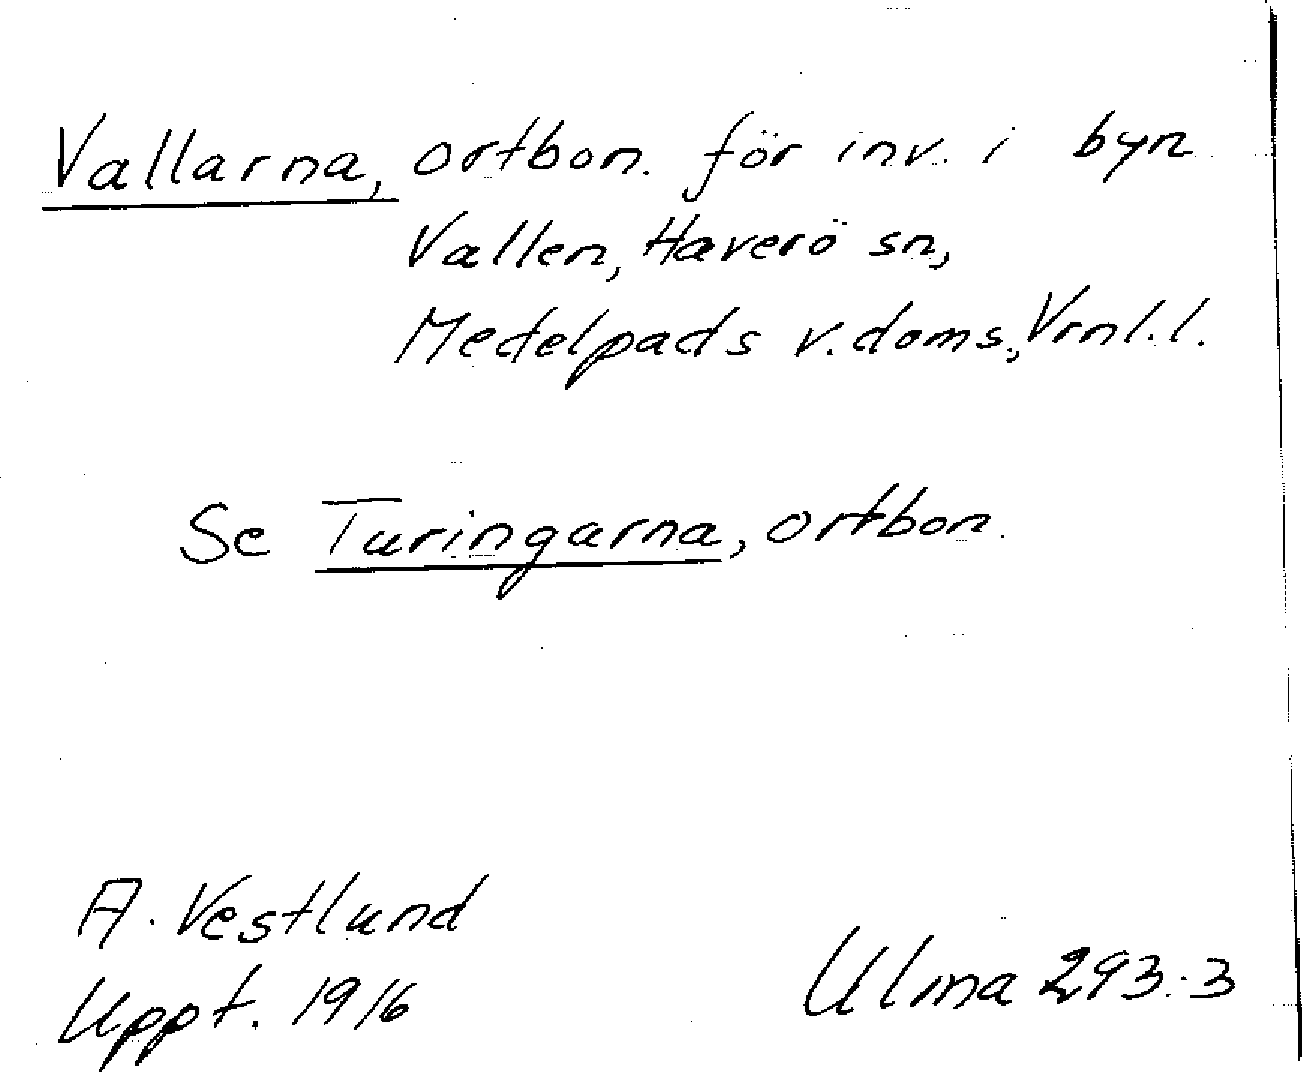 Vallarna, ortbon. för inv. i byn
Vallen, Haverö sn,
Medelpads v. doms., Vrnl. l.
Se Turingarna, ortbon.
A. Vestlund
Uppt. 1916
Ulma 293:3